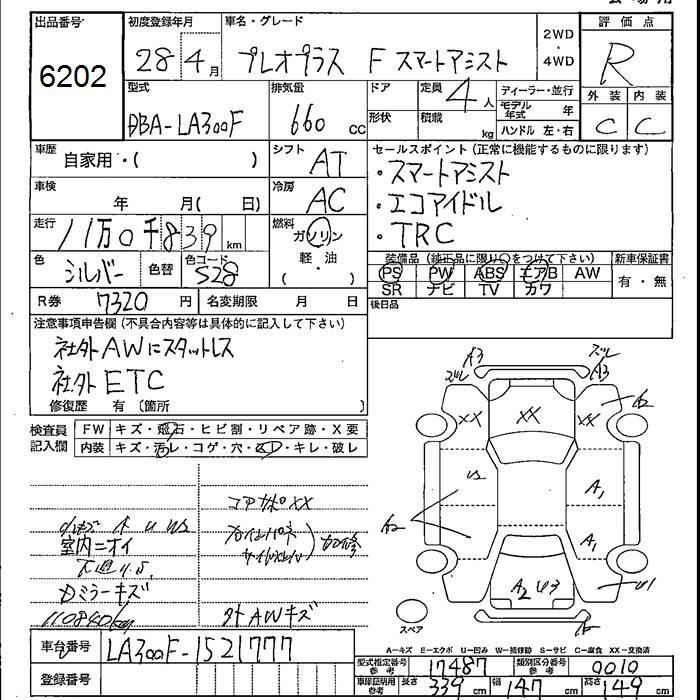 出品番号
6202
初度登録年月
28 4月
車名・グレード
プレオプラス F スマートアシスト
2WD
・
4WD
評価点
R
型式
DBA-LA300F
排気量
660 cc
ドア
形状
定員
4人
積載
kg
ディーラー・並行
モデル年式 年
ハンドル 左・右
外装 内装
C C
車歴
自家用・( )
シフト
AT
セールスポイント (正常に機能するものに限ります)
・スマートアシスト
・エコアイドル
・TRC
車検
年 月( 日)
冷房
AC
走行
11万0千839 km
燃料
ガソリン
軽・油
( )
色
シルバー
色替
色コード
S28
装備品 (純正品に限り○をつけて下さい)
PS PW ABS エアB AW
SR ナビ TV カワ
新車保証書
有・無
R券 7320 円
名変期限 月 日
後日品
注意事項申告欄 (不具合内容等は具体的に記入して下さい)
社外AWにスタットレス
社外ETC
修復歴 有 〔箇所 〕
検査員
記入欄
FW キズ・飛石・ヒビ割・リペア跡・X要
内装 キズ・汚レ・コゲ・穴・凹・キレ・破レ
コアサポXX
室内ニオイ
Dミラーキズ
110840km
外AWキズ
A3
ズレ
ズレ
A3
XX
XX
XX
A1
A1
U1
A2 U3
スペア
A-キズ E-エクボ U-凹み W-補修跡 S-サビ C-腐食 XX-交換済
車台番号
LA300F-1521777
型式指定番号
参考
17487
類別区分番号
参考
0010
車庫証明用
参考
長さ 339 cm
幅 147 cm
高さ 149 cm